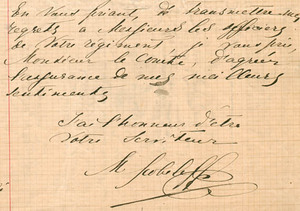 En vous priant, de transmettre mes
regrets à Messieurs les officiers
de votre régiment, je vous prie,
Monsieur le Comte, d'agréer
l'assurance de mes meilleurs
sentiments
J'ai l'honneur d'être
Votre Serviteur
M. Skobeleff